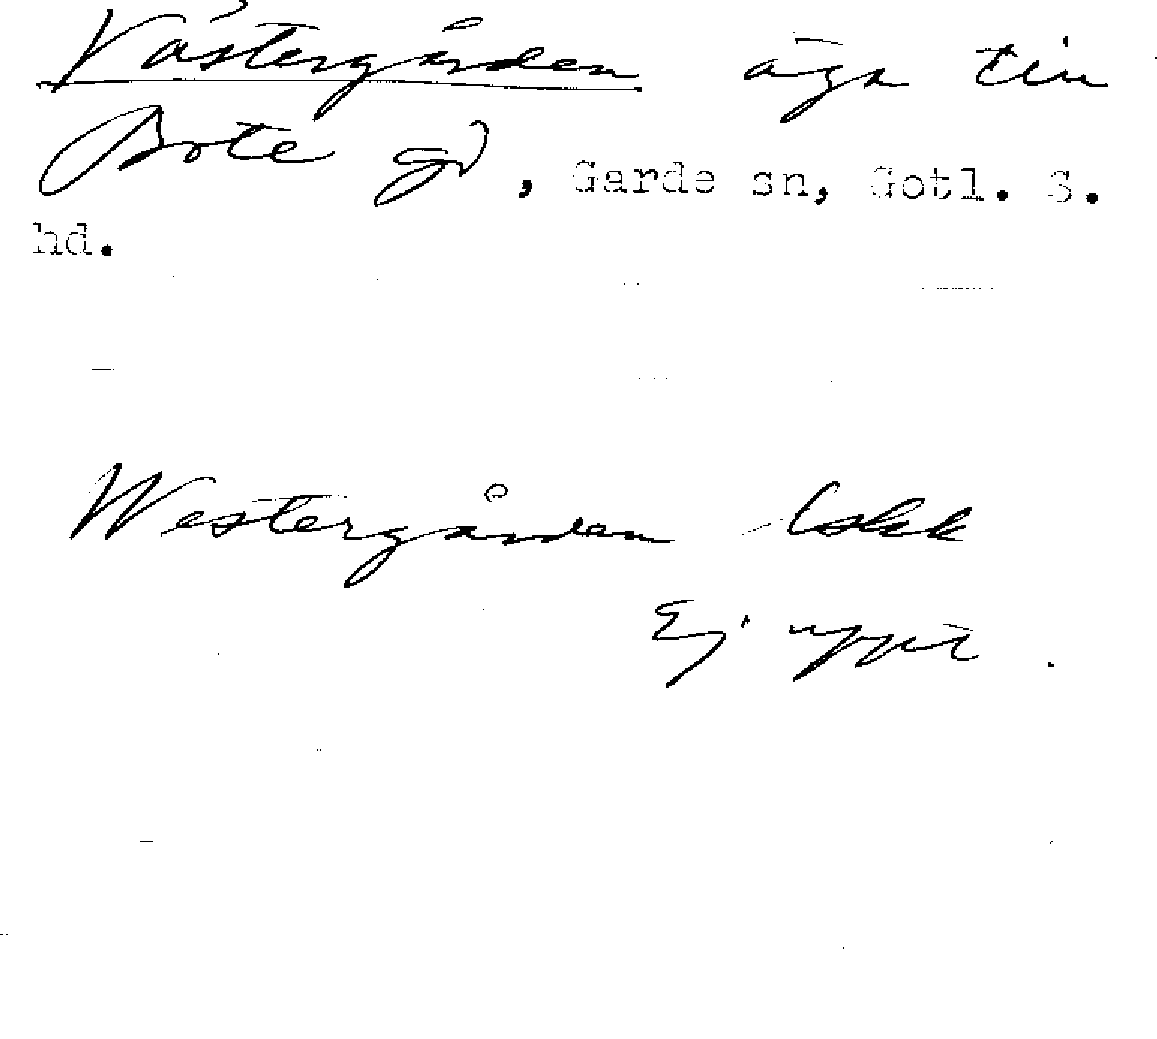 Västergården äga till
Bote gd, Garde sn, Gotl. S.
hd.
Westergården
Ej uppt.